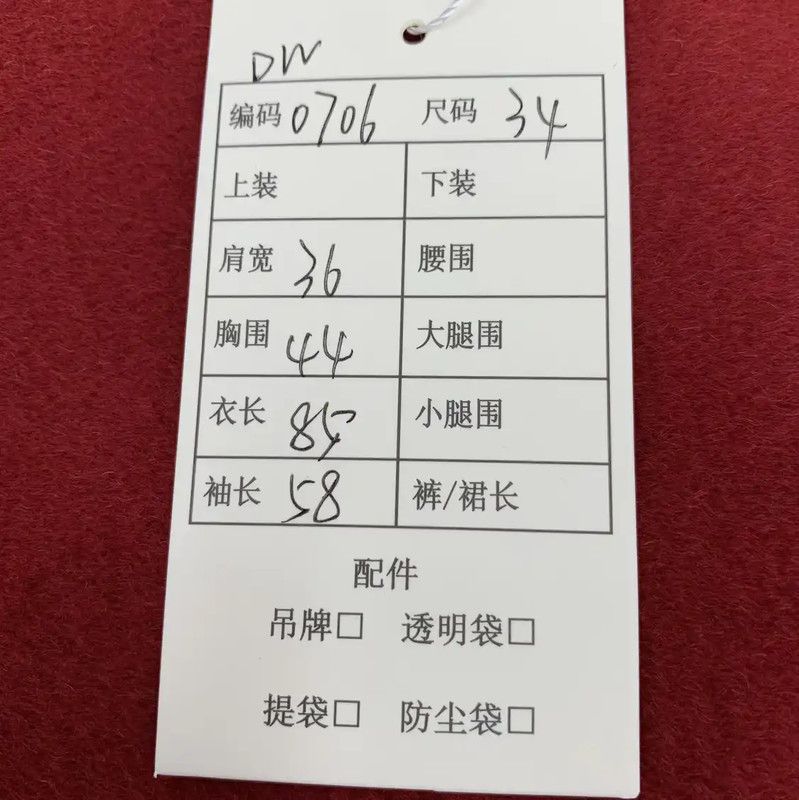 DW
编码 0706 尺码 34
上装 下装
肩宽 36 腰围
胸围 44 大腿围
衣长 85 小腿围
袖长 58 裤/裙长
配件
吊牌□ 透明袋□
提袋□ 防尘袋□